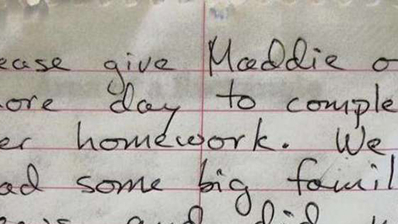 ease give Maddie o
ore day to comple
er homework. We
ad some big famil
and did